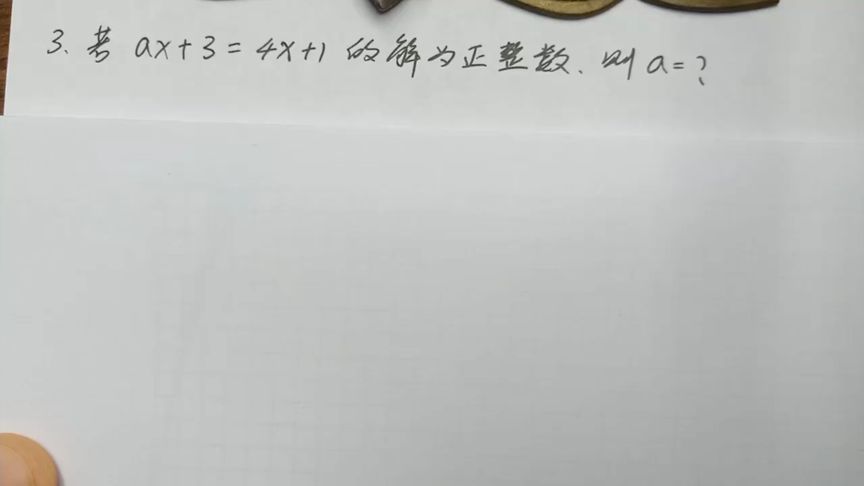 3. 若 ax+3=4x+1 的解为正整数. 则 a=?